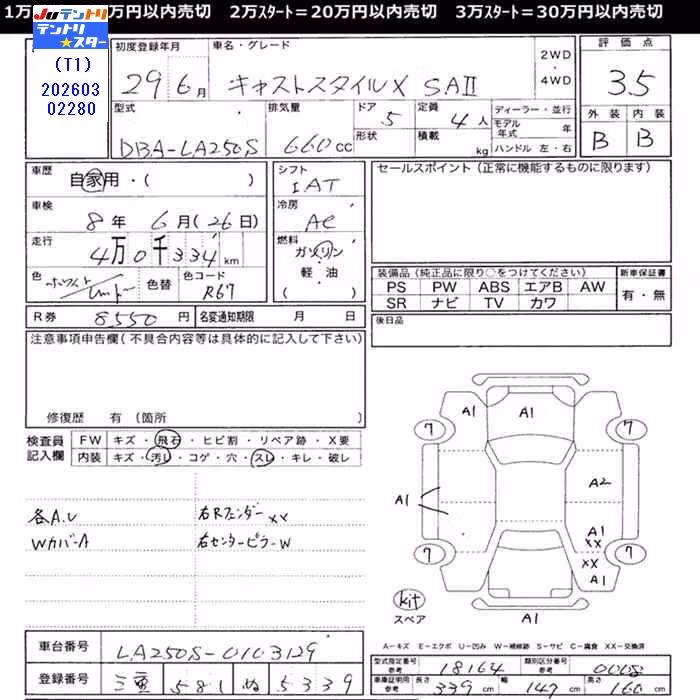 1万 万円以内売切 2万ｽﾀｰﾄ＝20万円以内売切 3万ｽﾀｰﾄ＝30万円以内売切
JUテントリ
テントリ★スター
(T1)
202603
02280
初度登録年月
29 6月
車名・グレード
キャストスタイルX SAⅡ
2WD
4WD
評価点
3.5
外装 内装
B B
型式
DBA-LA250S
排気量
660cc
ドア
5
形状
定員
4人
積載
kg
ディーラー・並行
モデル年式 年
ハンドル 左・右
車歴
自家用・( )
車検
8年 6月(26日)
走行
4万0千334km
色
ホワイト/レッド
色替
色コード
R67
シフト
IAT
冷房
AC
燃料
ガソリン
軽油
( )
セールスポイント(正常に機能するものに限ります)
装備品(純正品に限り○をつけてください)
PS PW ABS エアB AW
SR ナビ TV カワ
新車保証書
有・無
R券 8,550円
名変通知期限 月 日
後日品
注意事項申告欄(不具合内容等は具体的に記入して下さい)
修復歴 有(箇所 )
検査員記入欄
FW キズ・飛石・ヒビ割・リペア跡・X要
内装 キズ・汚し・コゲ・穴・スレ・キレ・破レ
各A.U
右Rフェンダー XX
WカバーA
右センターピラーW
A1
A1
7
7
A1
A2
A1
XX
XX
A1
7
7
kit
スペア
A1
A－キズ E－エクボ U－凹み W－補修跡 S－サビ C－腐食 XX－交換済
車台番号
LA250S-0103129
登録番号
三重 581 ぬ 5339
型式指定番号
参考
18164
類別区分番号
参考
0008
車庫証明用
参考
長さ 339cm
幅 147cm
高さ 160cm